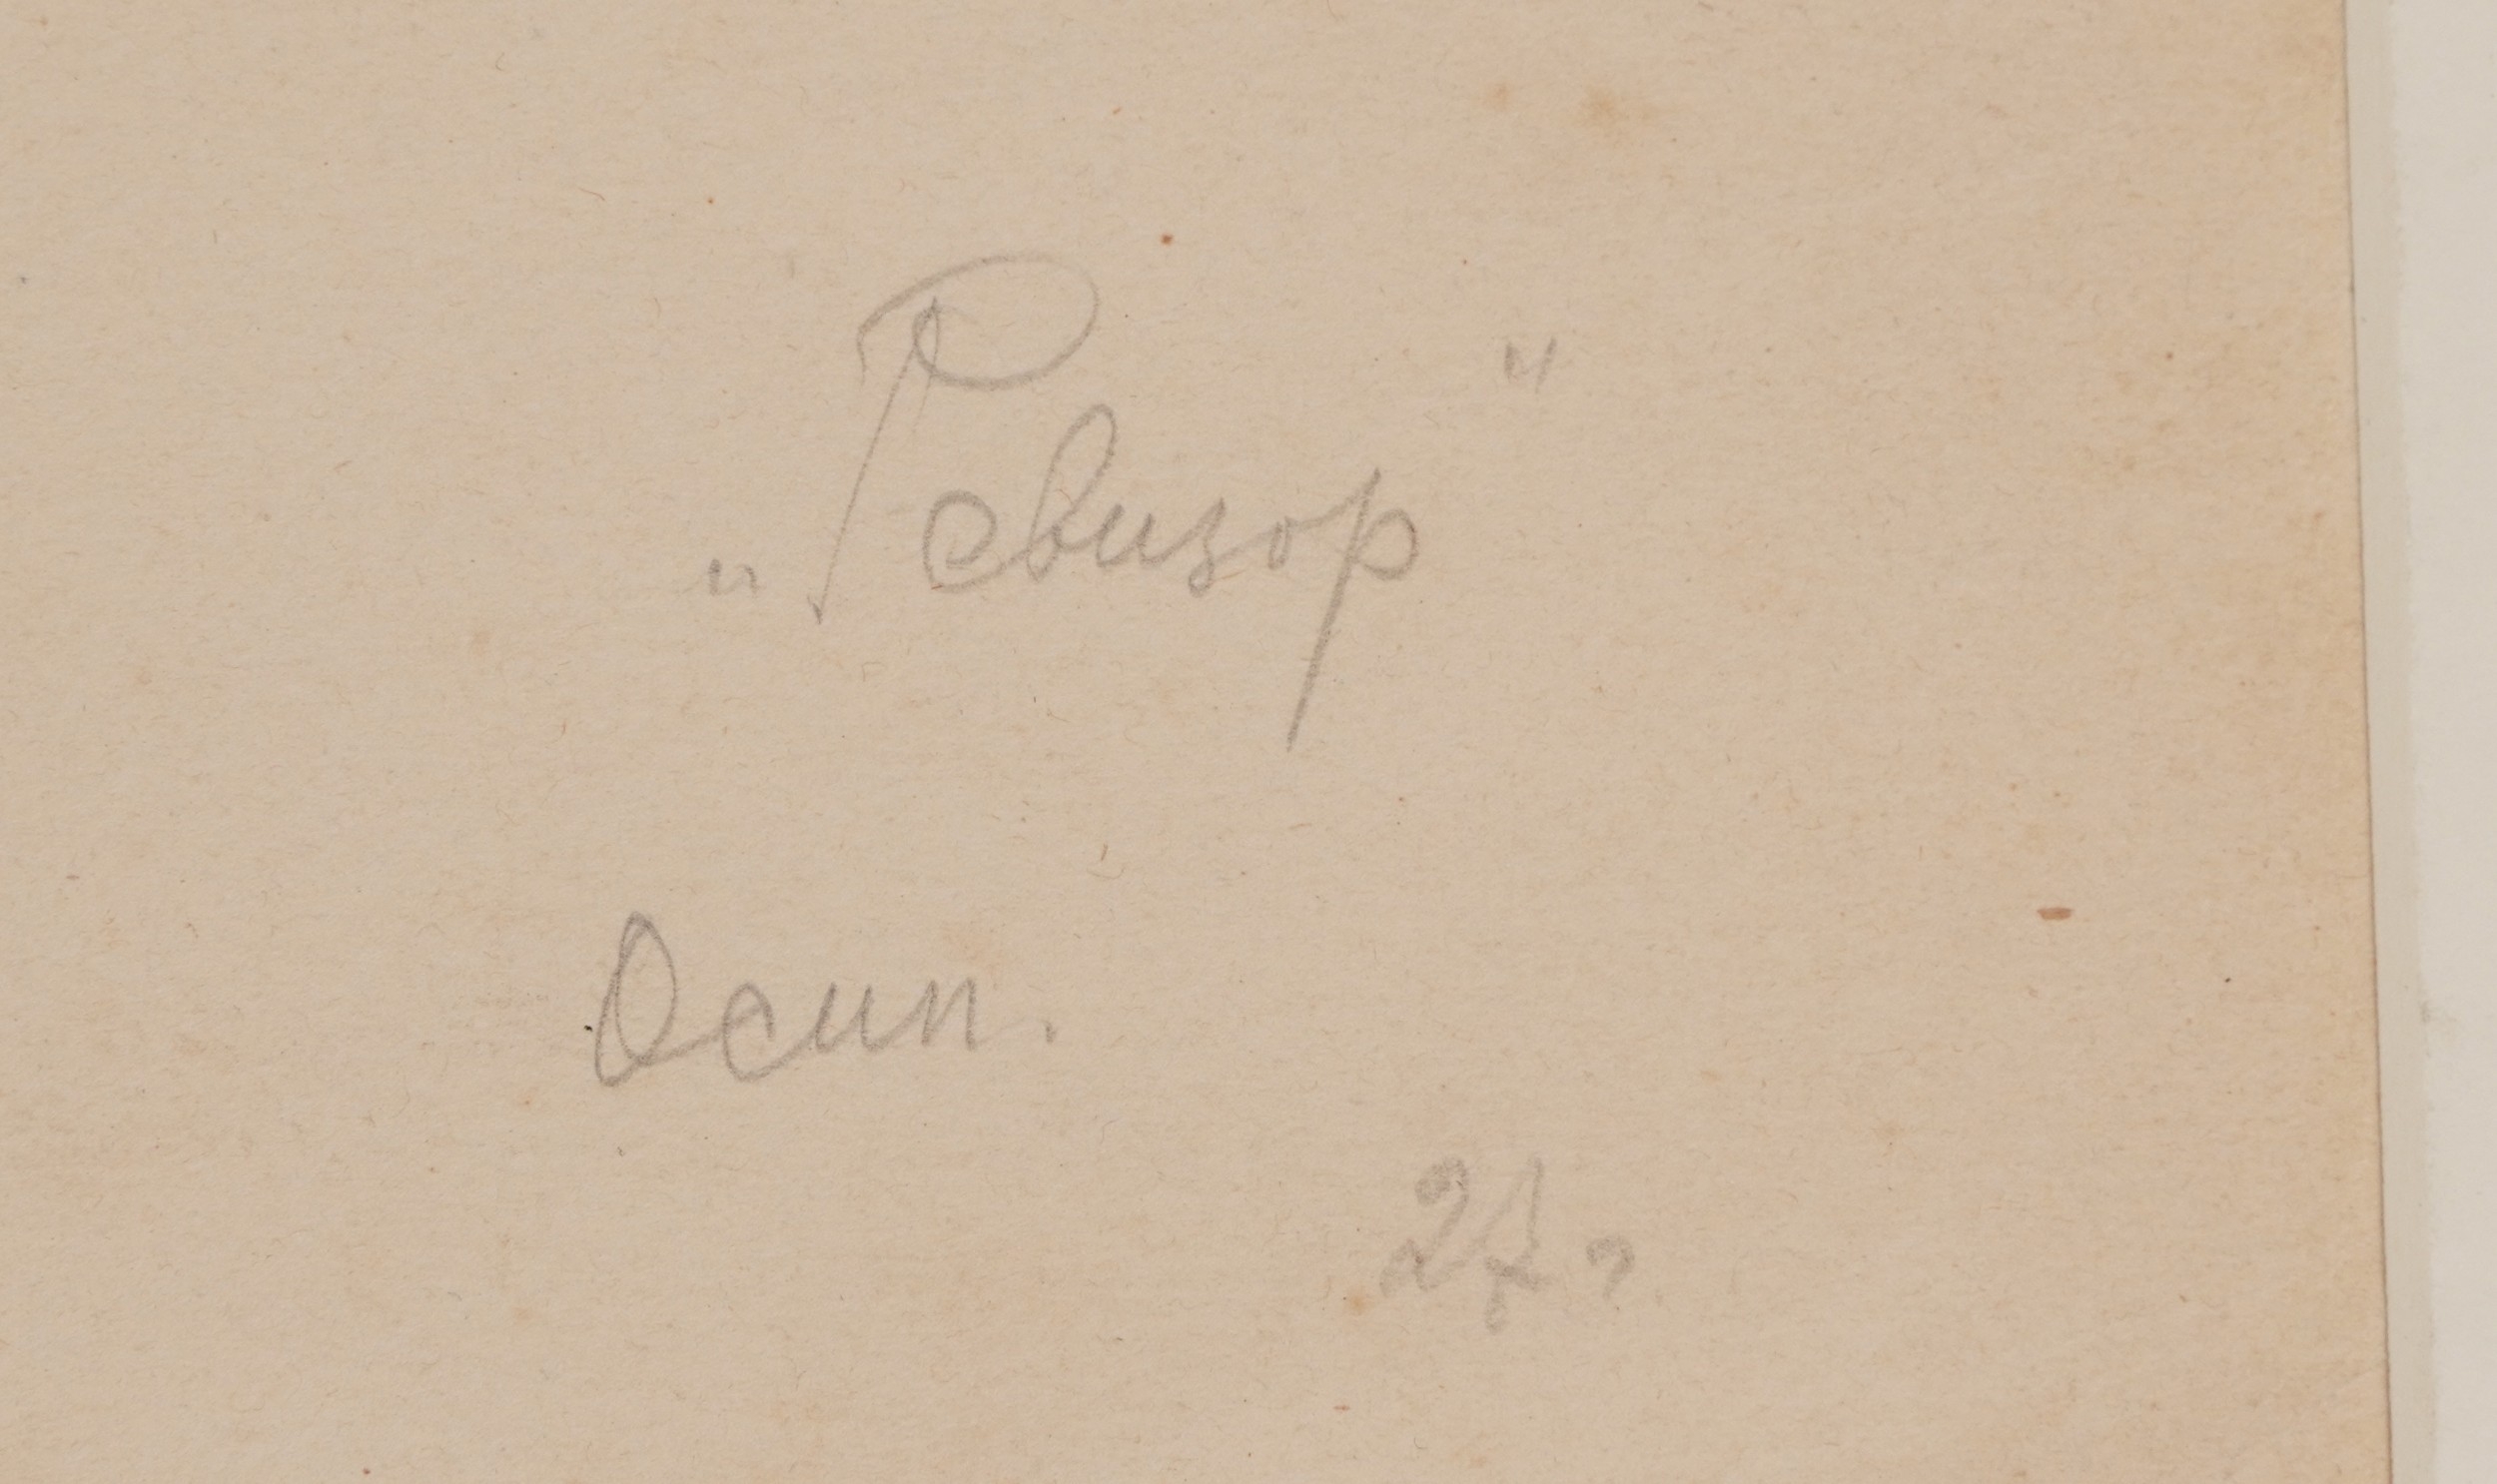 „Ревизор"
Осип.